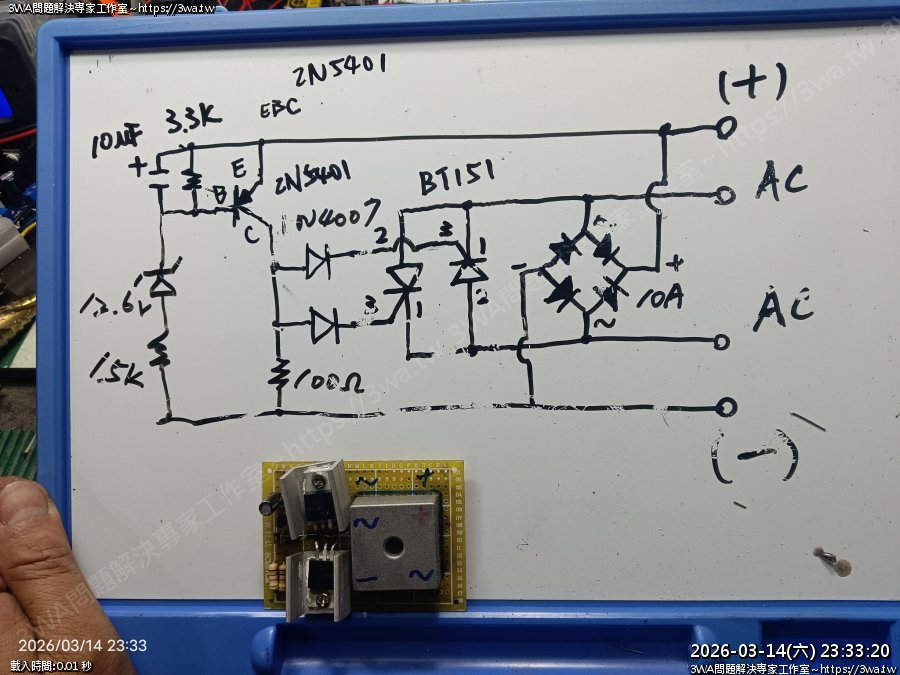 3WA問題解決專家工作室~https://3wa.tw
2N5401
EBC
(+)
10uF
3.3K
+
E
B
C
2N5401
BT151
AC
1N4007
2
3
1
3
1
2
-
~
+
10A
~
13.6V
1.5K
100Ω
AC
(-)
~
+
~
+
-
~
2026/03/14 23:33
載入時間:0.01 秒
2026-03-14(六) 23:33:20
3WA問題解決專家工作室~https://3wa.tw
3WA問題解決專家工作室~https://3wa.tw